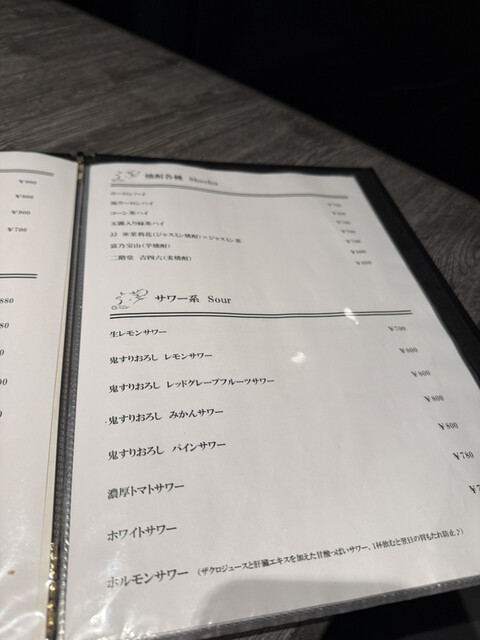 ¥900
¥900
¥900
¥700
880
焼酎各種 Shochu
ウーロンハイ
コーン茶ハイ
玉露入り緑茶ハイ
JJ 茉莉花(ジャスミン焼酎)×ジャスミン茶
富乃宝山(芋焼酎)
二階堂 吉四六(麦焼酎)
サワー系 Sour
生レモンサワー ¥700
鬼すりおろし レモンサワー ¥800
鬼すりおろし レッドグレープフルーツサワー ¥800
鬼すりおろし みかんサワー ¥800
鬼すりおろし パインサワー ¥800
濃厚トマトサワー ¥780
ホワイトサワー ¥7
ホルモンサワー (ザクロジュースと肝臓エキスを加えた甘酸っぱいサワー、1杯飲むと翌日の胃もたれ防止♪)